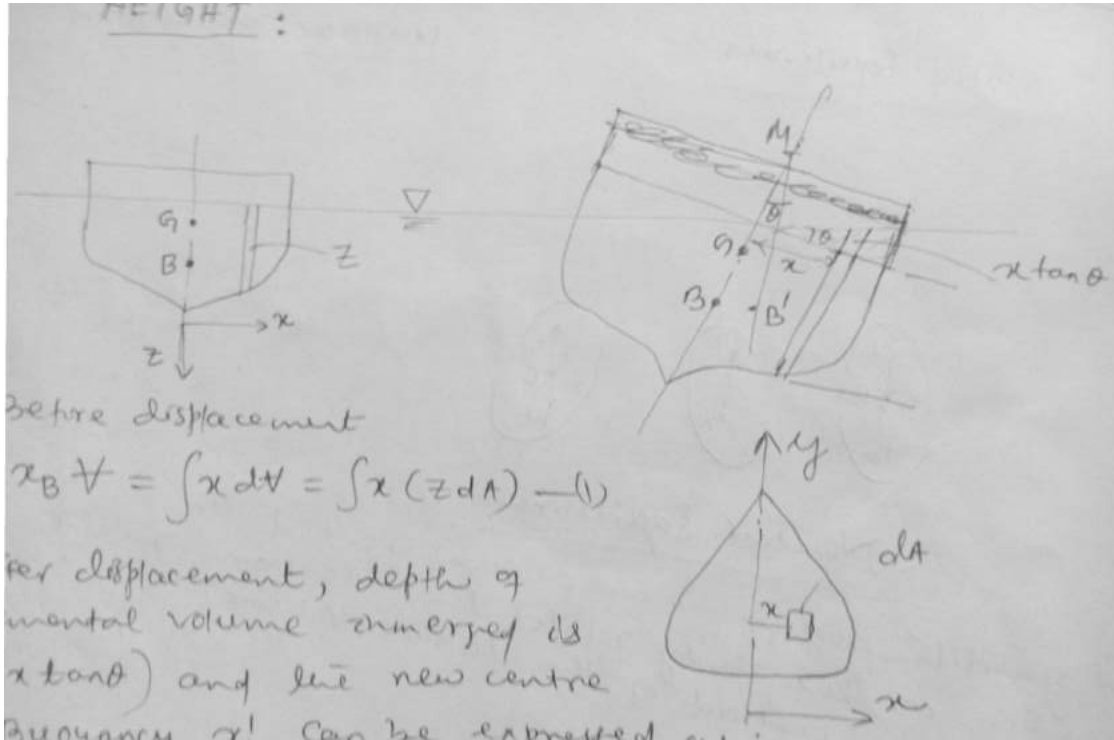 HEIGHT :
G
B
Z
x
z
M
θ
θ
G
x
B
B'
x tan θ
Before displacement
x_B V = ∫ x dV = ∫ x (z dA) — (1)
y
dA
x
x
displacement, depth of
volume immersed is
x tanθ) and the new centre
Buoyancy x' can be expressed